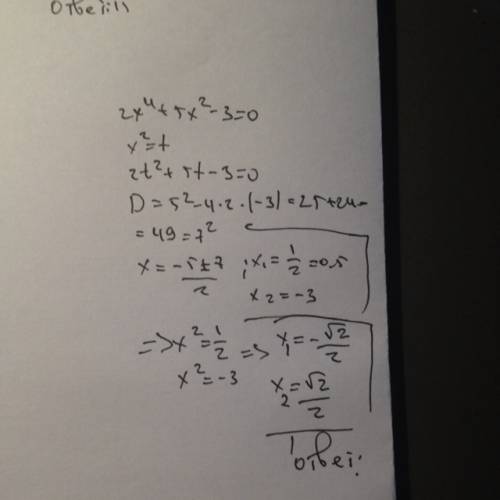 Ответ:
2x⁴+5x²-3=0
x²=t
2t²+5t-3=0
D=5²-4·2·(-3)=25+24=
=49=7²
x=-5±7/2 ; x₁=1/2=0,5
x₂=-3
=>x²=1/2 => x₁=-√2/2
x²=-3
x₂=√2/2
Ответ: